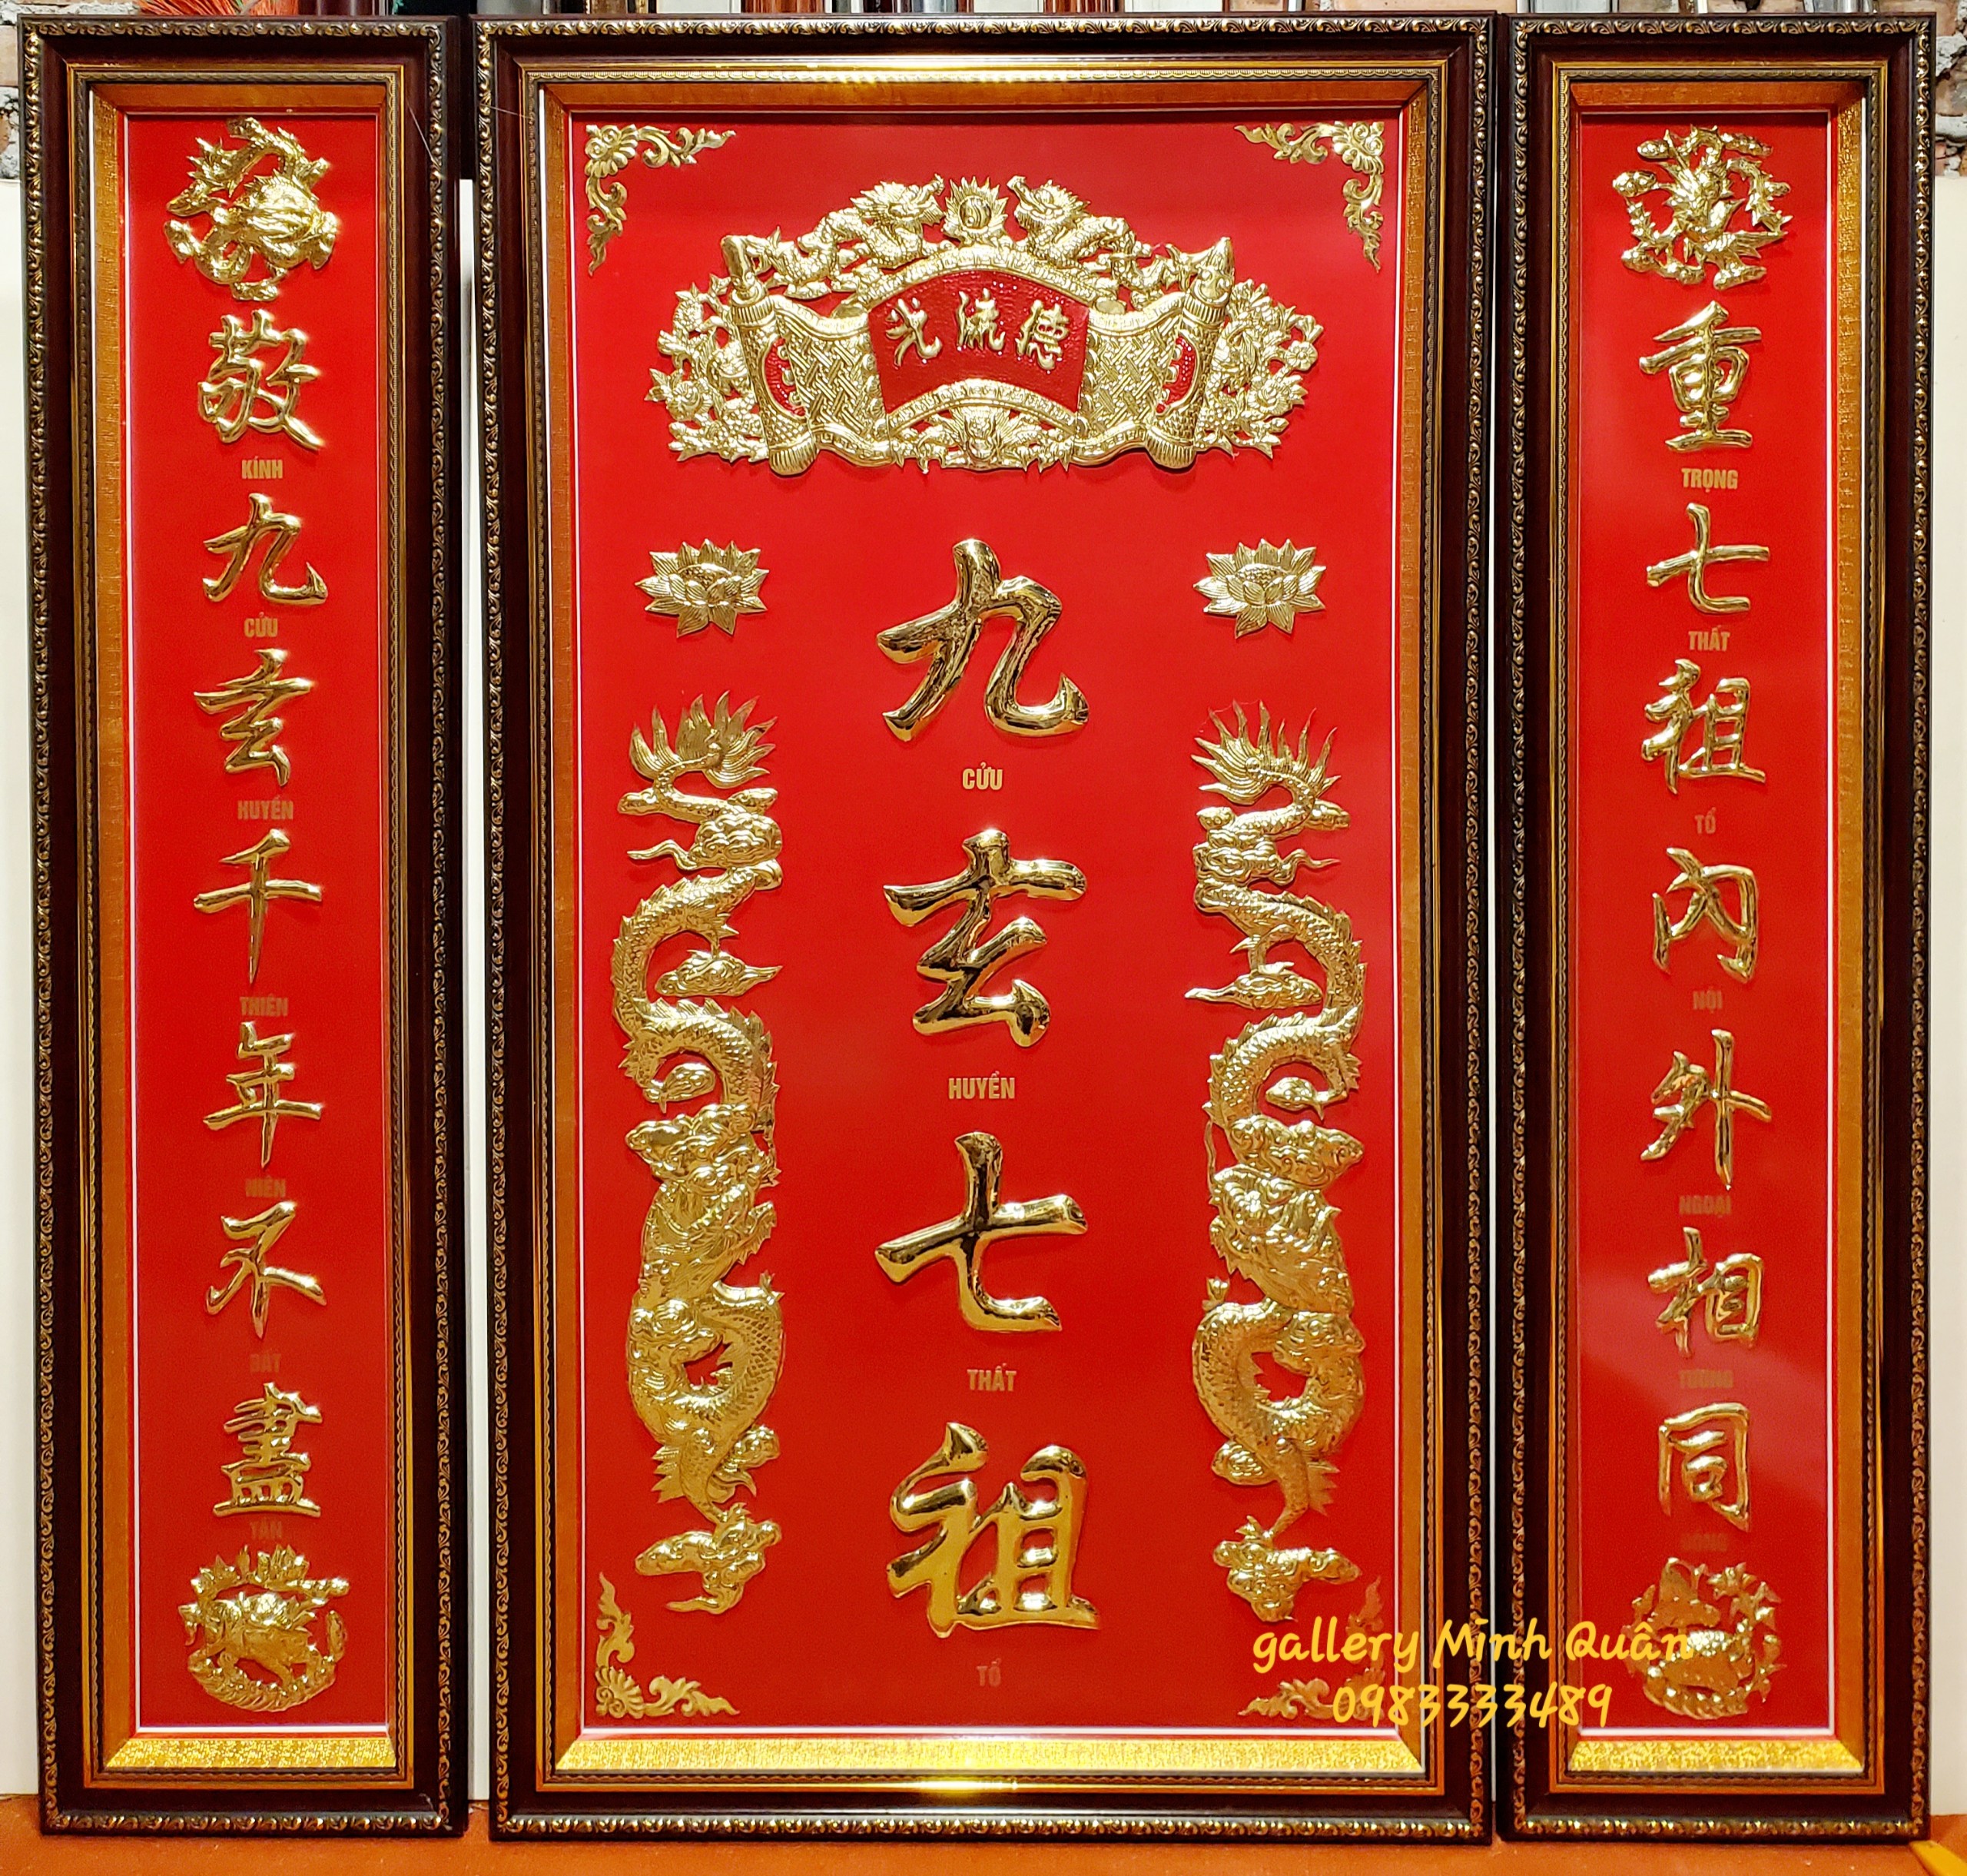 敬
KÍNH
九
CỬU
玄
HUYỀN
千
THIÊN
年
NIÊN
不
BẤT
盡
TẬN
光流德
九
CỬU
玄
HUYỀN
七
THẤT
祖
TỔ
重
TRỌNG
七
THẤT
祖
TỔ
內
NỘI
外
NGOẠI
相
TƯƠNG
同
ĐỒNG
gallery Minh Quân
0983333489